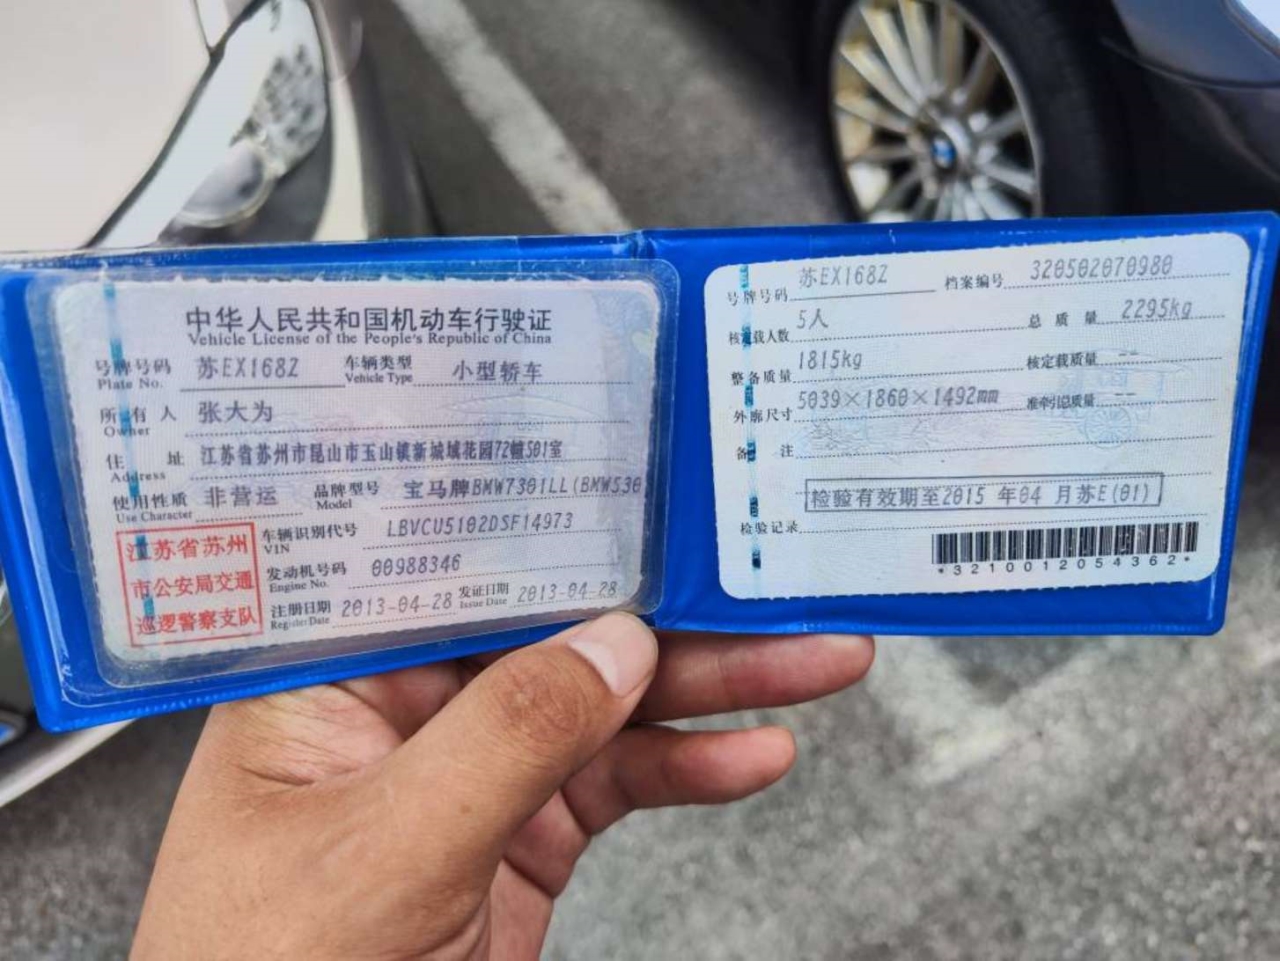 中华人民共和国机动车行驶证
Vehicle License of the People's Republic of China
号牌号码 苏EX168Z 车辆类型 小型轿车
Plate No. Vehicle Type
所有人 张大为
Owner
住址 江苏省苏州市昆山市玉山镇新城域花园72幢501室
Address
使用性质 非营运 品牌型号 宝马牌BMW7301LL(BMW530
Use Character Model
江苏省苏州
市公安局交通
巡逻警察支队
车辆识别代号 LBVCU5102DSF14973
VIN
发动机号码 00988346
Engine No.
注册日期 2013-04-28 发证日期 2013-04-28
Register Date Issue Date
号牌号码 苏EX168Z 档案编号 320502070980
核定载人数 5人 总质量 2295kg
整备质量 1815kg 核定载质量 --
外廓尺寸 5039×1860×1492mm 准牵引总质量 --
备注
检验有效期至2015 年04 月苏E(01)
检验记录
*3210012054362*